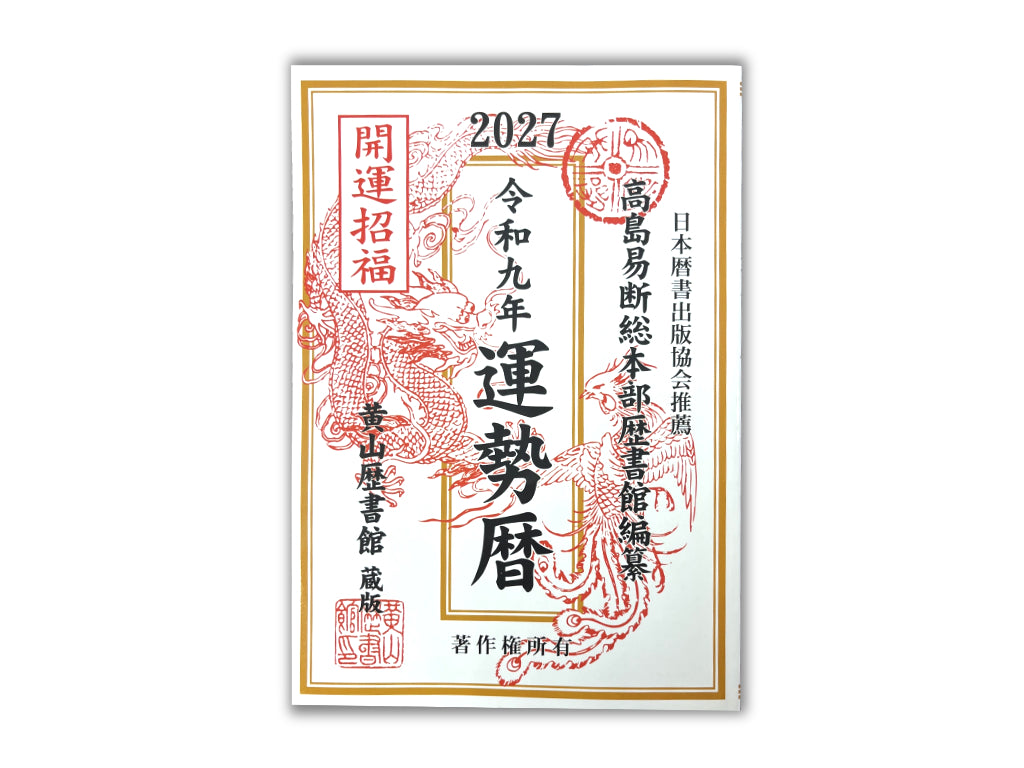 2027
日本暦書出版協会推薦
高島易断総本部歴書館編纂
令和九年
運勢暦
開運招福
黄山歴書館 蔵版
黄山
歴書
館印
著作権所有